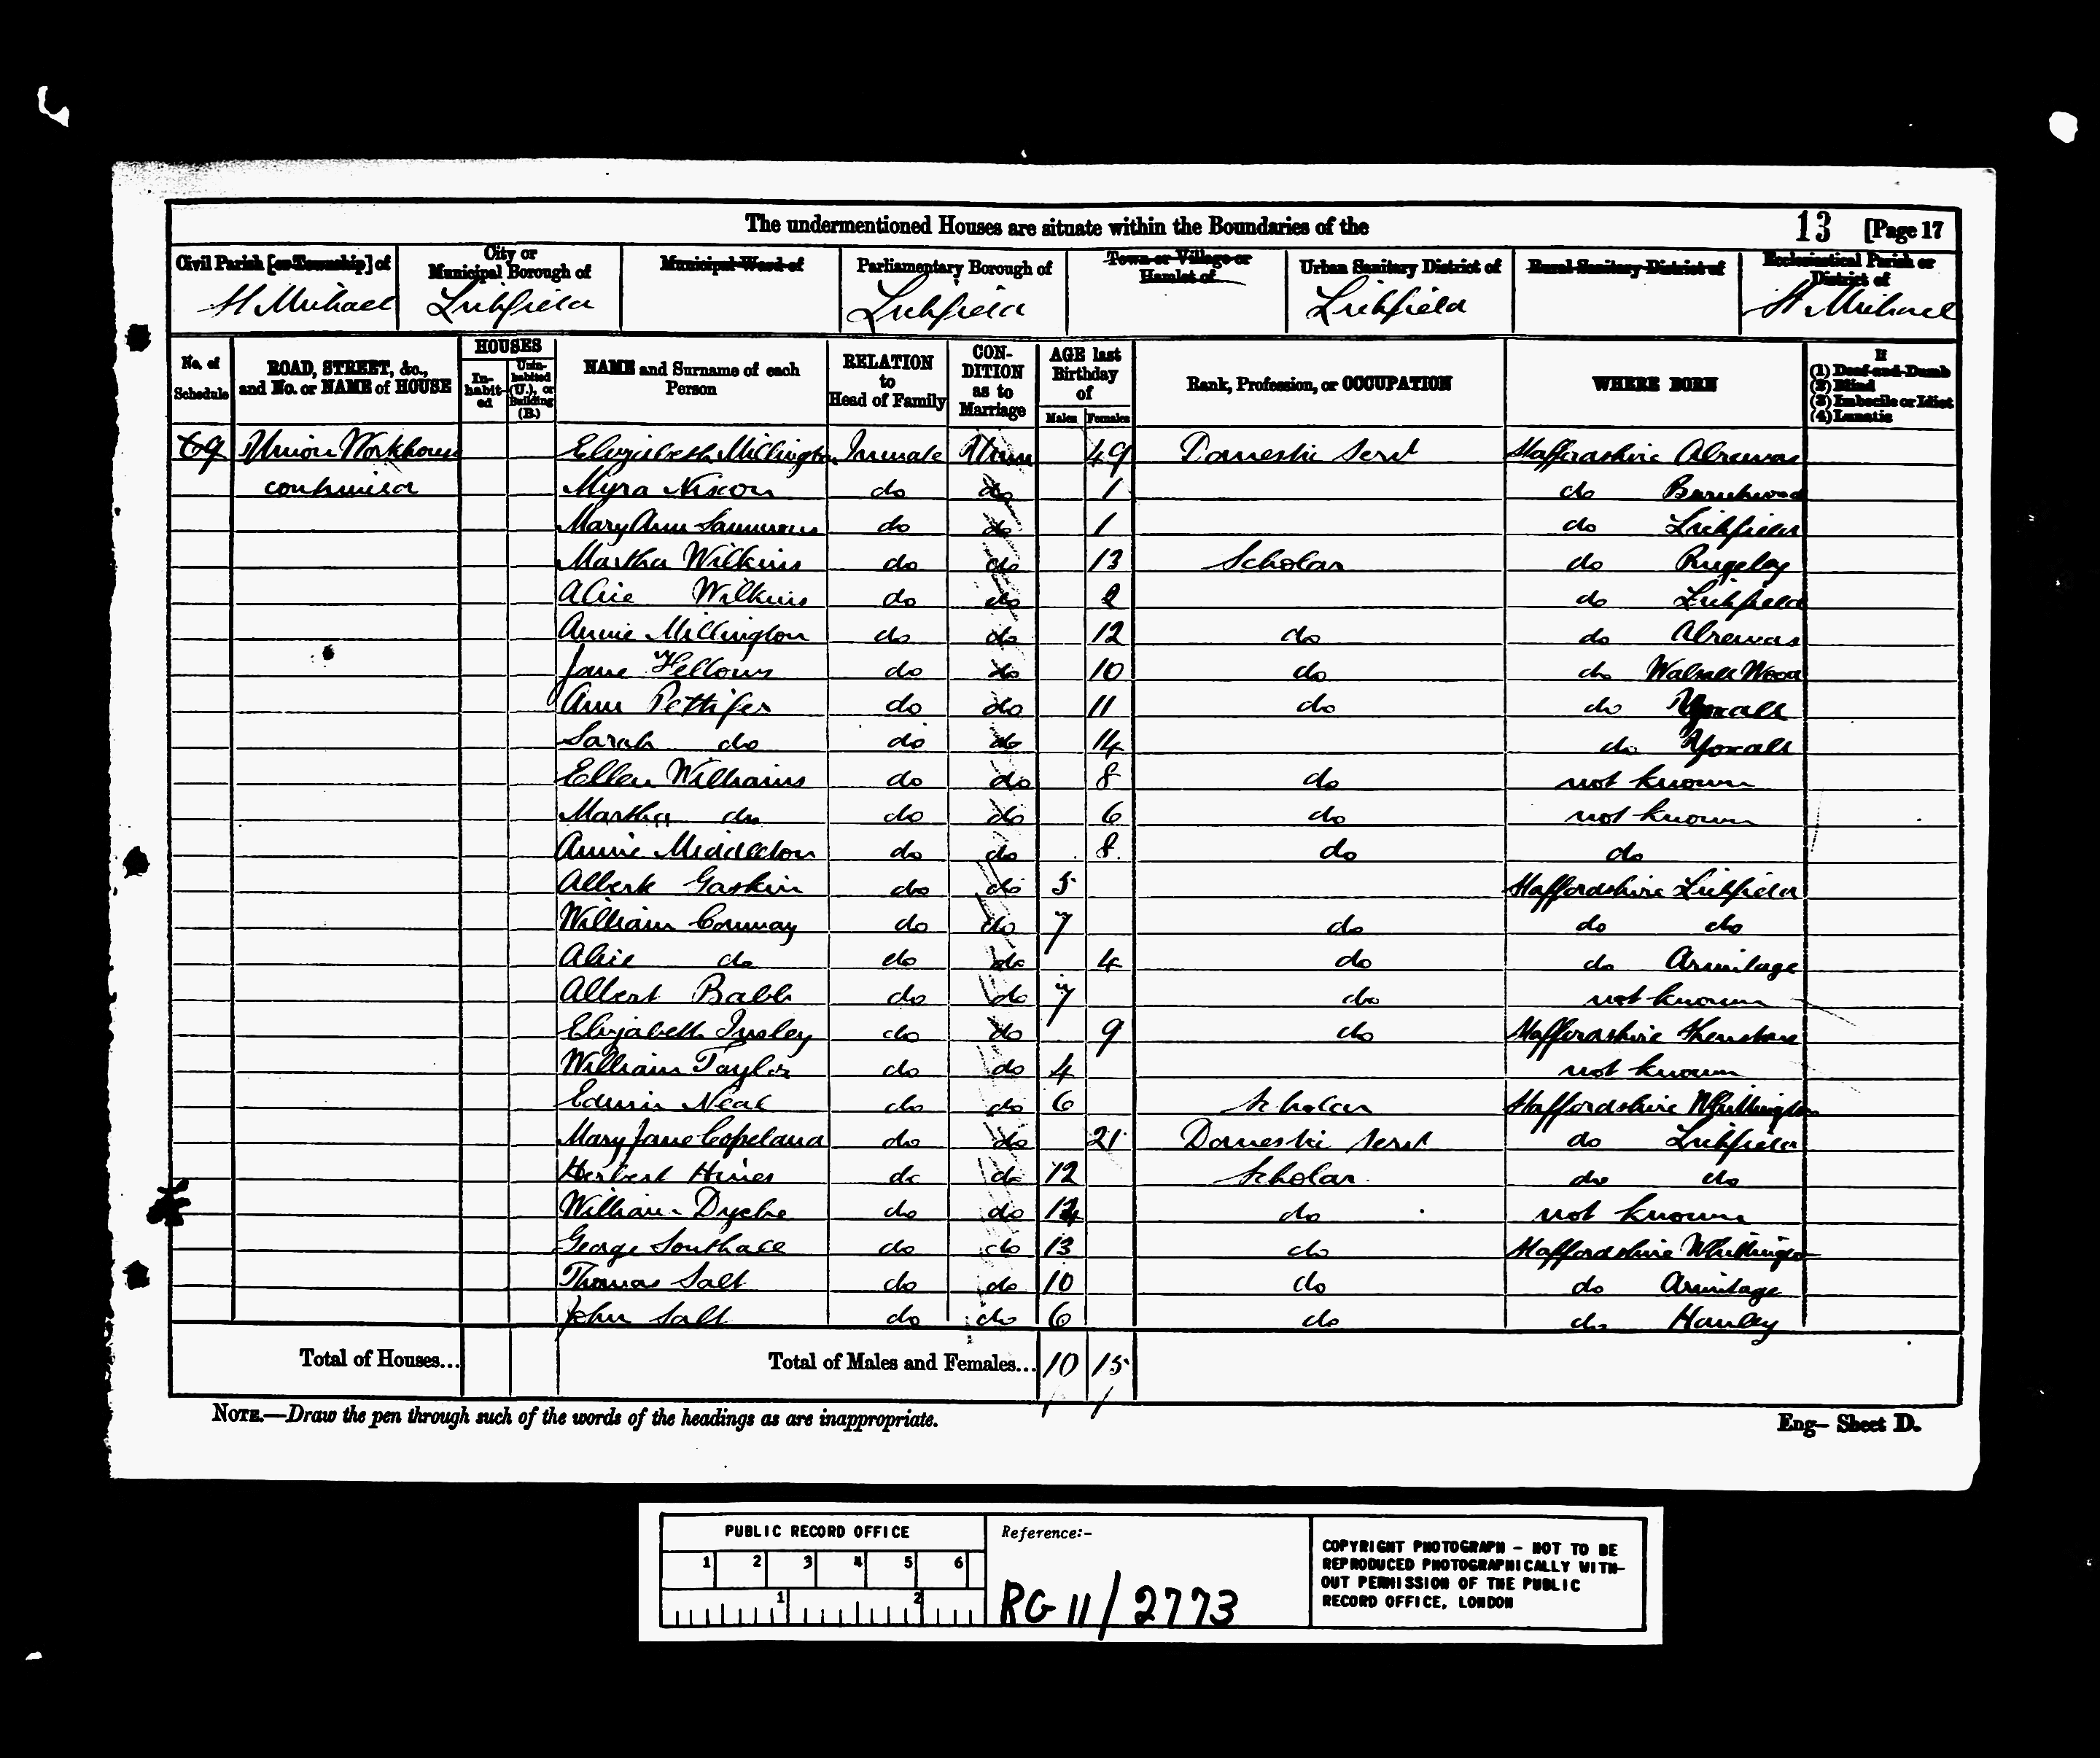 The undermentioned Houses are situate within the Boundaries of the 13 [Page 17
Civil Parish [or Township] of St Michael
City or Municipal Borough of Lichfield
Municipal Ward of
Parliamentary Borough of Lichfield
Town or Village or Hamlet of
Urban Sanitary District of Lichfield
Rural Sanitary District of
Ecclesiastical Parish or District of St Michael
No. of Schedule
ROAD, STREET, &c., and No. or NAME of HOUSE
HOUSES
Inhabited
Uninhabited (U.), or Building (B.)
NAME and Surname of each Person
RELATION to Head of Family
CONDITION as to Marriage
AGE last Birthday of
Males Females
Rank, Profession, or OCCUPATION
WHERE BORN
If
(1) Deaf-and-Dumb
(2) Blind
(3) Imbecile or Idiot
(4) Lunatic
69 Union Workhouse Elizabeth Millington Inmate Unm 49 Domestic Servt Staffordshire Alrewas
continued Myra Nixon do do 1 do Burntwood
Mary Ann Sammons do do 1 do Lichfield
Martha Wilkins do do 13 Scholar do Rugeley
Alice Wilkins do do 2 do Lichfield
Annie Millington do do 12 do do Alrewas
Jane Fellows do do 10 do do Walsall Wood
Ann Pettifer do do 11 do do Yoxall
Sarah do do do 14 do Yoxall
Ellen Williams do do 8 do not known
Martha do do do 6 do not known
Annie Middleton do do 8 do do
Albert Gaskin do do 5 Staffordshire Lichfield
William Conway do do 7 do do do
Alice do do do 4 do do Armitage
Albert Babb do do 7 do not known
Elizabeth Insley do do 9 do Staffordshire Shenstone
William Taylor do do 4 not known
Edwin Neal do do 6 Scholar Staffordshire Whittington
Mary Jane Copeland do do 21 Domestic Servt do Lichfield
Herbert Hines do do 12 Scholar do do
William Dyche do do do not known
George Southall do do 13 do Staffordshire Whittington
Thomas Salt do do 10 do do Armitage
John Salt do do 6 do do Hanley
Total of Houses... Total of Males and Females... 10 15
NOTE.—Draw the pen through such of the words of the headings as are inappropriate.
Eng— Sheet D.
PUBLIC RECORD OFFICE
1 2 3 4 5 6
1 2
Reference:-
RG 11/2773
COPYRIGHT PHOTOGRAPH - NOT TO BE
REPRODUCED PHOTOGRAPHICALLY WITH-
OUT PERMISSION OF THE PUBLIC
RECORD OFFICE, LONDON